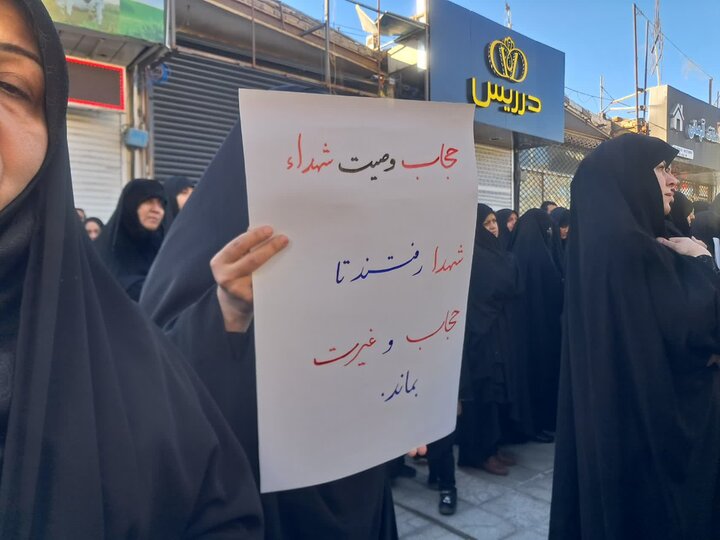 حجاب وصیت شهداء
شهدا رفتند تا
حجاب و غیرت
بماند.
درریس